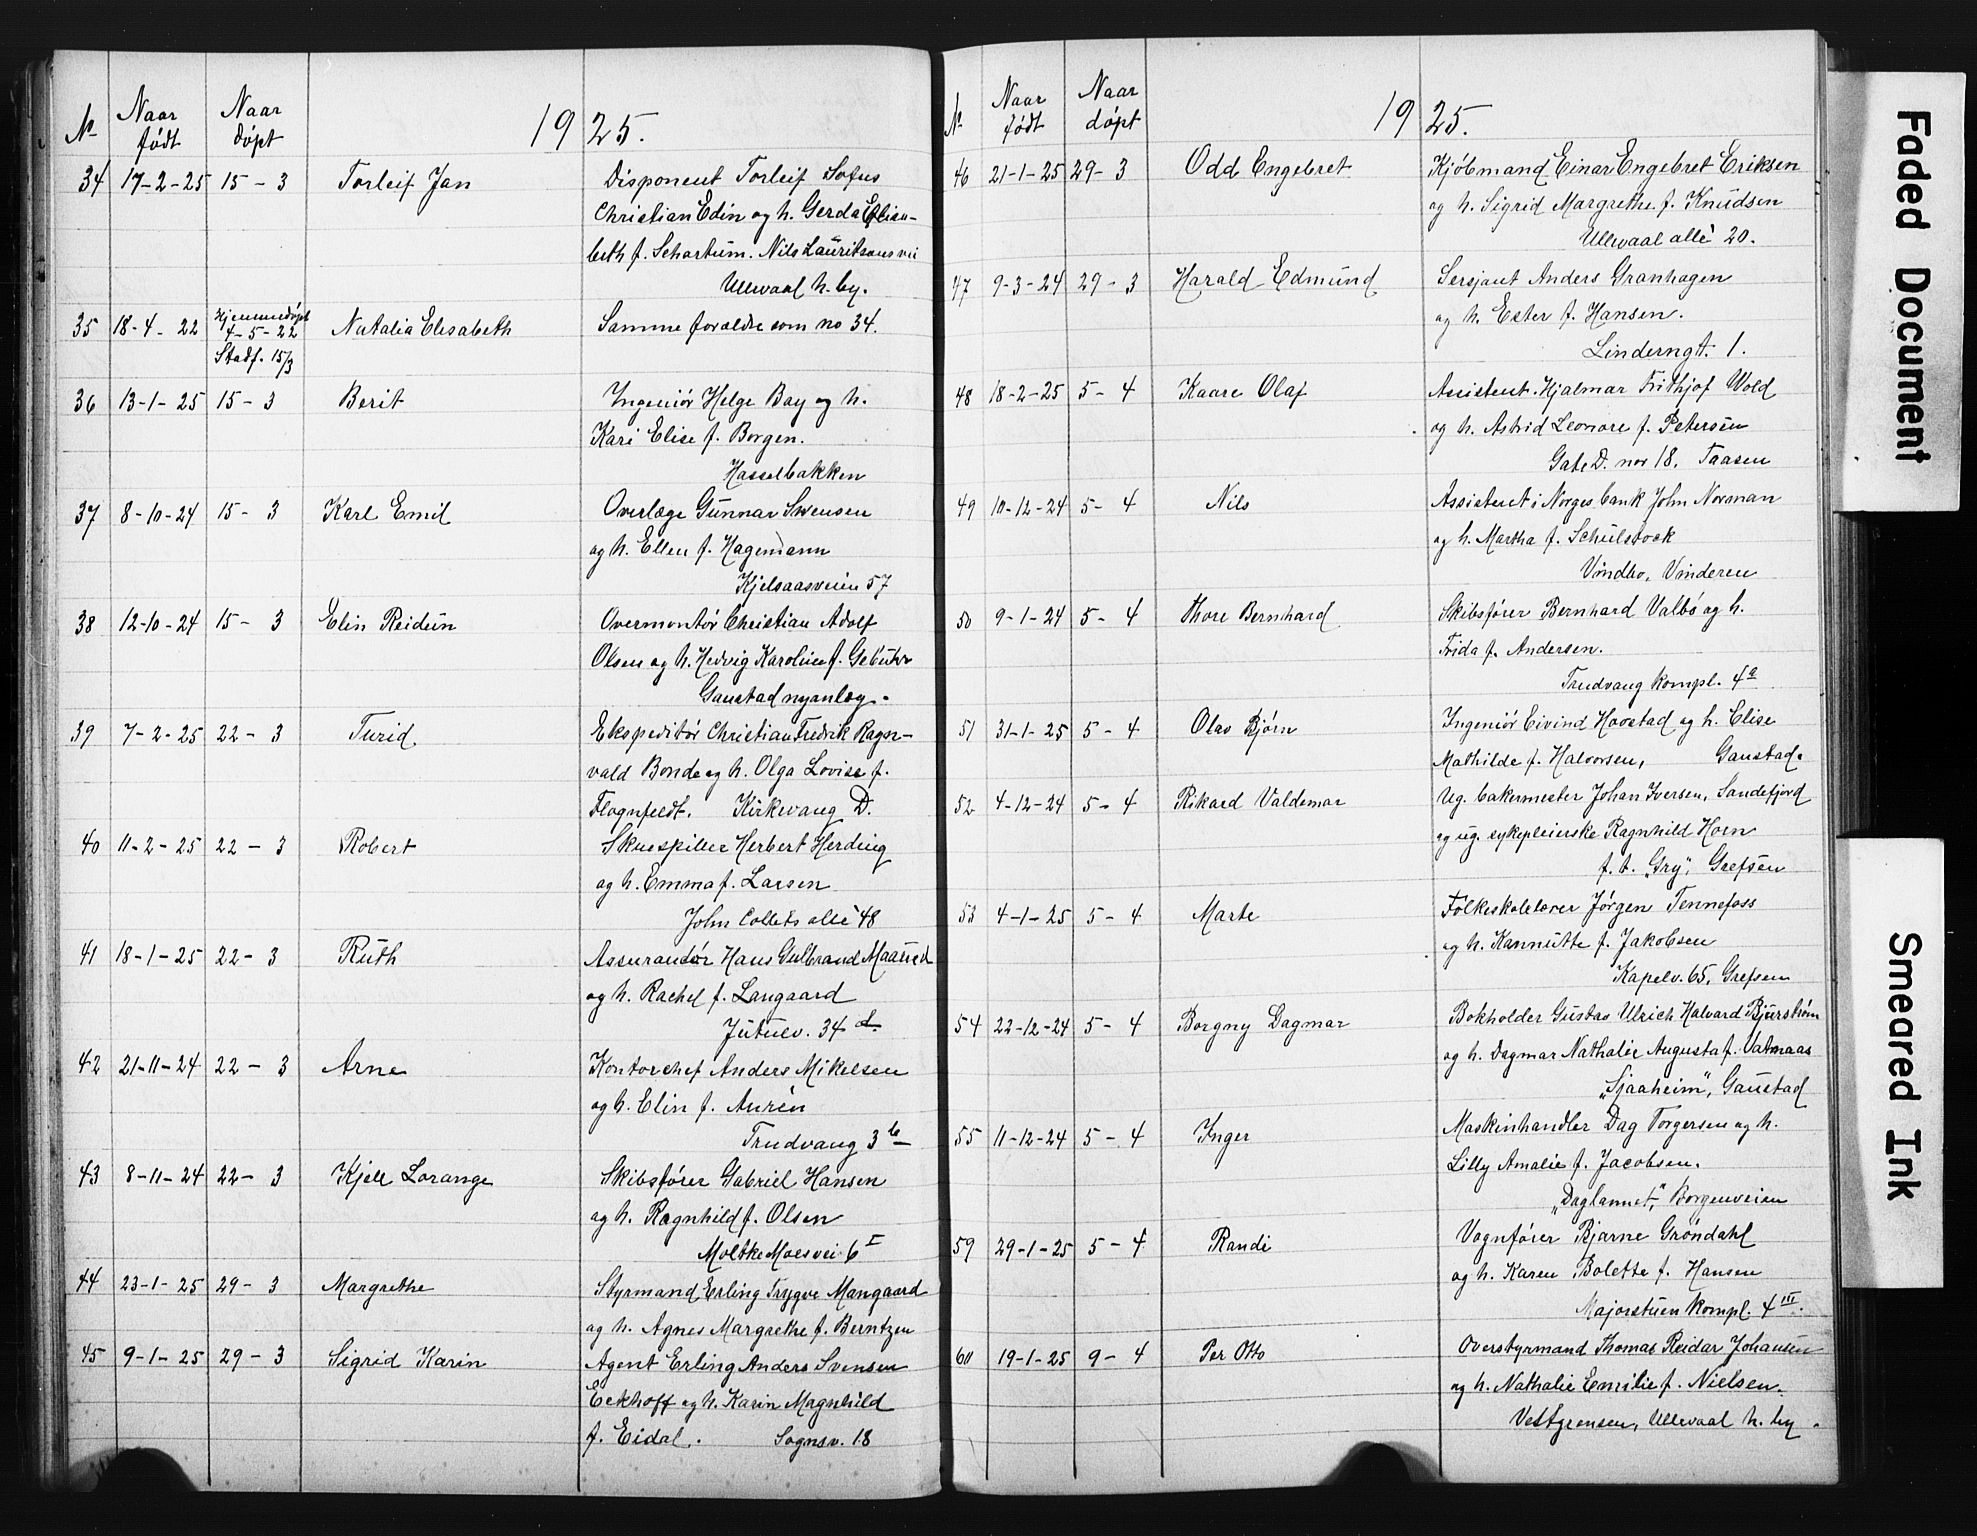 No Naar født Naar døpt 1925.
34 17-2-25 15-3 Torleif Jan Disponent Torleif Sofus
Christian Edin og h. Gerda Elisa-
beth f. Schartum. Nils Lauritsøns vei
Ullevaal h. by.
35 18-4-22 Hjemmedøpt 4-5-22 Stadf. 15/3 Natalia Elisabeth Samme forældre som no 34.
36 13-1-25 15-3 Berit Ingeniør Helge Bay og h.
Kari Elise f. Borgen.
Hasselbakken
37 8-10-24 15-3 Karl Emil Overlæge Gunnar Swensen
og h. Ellen f. Hagemann
Kjelsaasveien 57
38 12-10-24 15-3 Elin Reidun Overmontør Christian Adolf
Olsen og h. Hedvig Karoline f. Gebuhr
Gaustad nyanlæg.
39 7-2-25 22-3 Turid Ekspeditør Christian Fredrik Ragn-
vald Bonde og h. Olga Lovise f.
Flognfeldt. Kirkevang D.
40 11-2-25 22-3 Robert Skuespiller Herbert Herding
og h. Emma f. Larsen
John Collets alle 48
41 18-1-25 22-3 Ruth Assurandør Hans Gulbrand Maarud
og h. Rachel f. Langaard
Jutulv. 34 d.
42 21-11-24 22-3 Arne Kontorchef Anders Mikelsen
og h. Elin f. Aurén
Trudvang 3 b
43 8-11-24 22-3 Kjell Lorange Skibsfører Gabriel Hansen
og h. Ragnhild f. Olsen
Moltke Moes vei 6 I
44 23-1-25 29-3 Margrethe Styrmand Erling Trygve Mangaard
og h. Agnes Margrethe f. Berntzen
45 9-1-25 29-3 Sigrid Karin Agent Erling Anders Svensen
Eckhoff og h. Karin Magnhild
f. Eidal. Sognsv. 18
No Naar født Naar døpt 1925.
46 21-1-25 29-3 Odd Engebret Kjøbmand Einar Engebret Eriksen
og h. Sigrid Margrethe f. Knudsen
Ullevaal allé 20.
47 9-3-24 29-3 Harald Edmund Sersjant Anders Granhagen
og h. Ester f. Hansen.
Linderngt. 1.
48 18-2-25 5-4 Kaare Olaf Assistent Hjalmar Frithjof Wold
og h. Astrid Leonore f. Petersen
Gate D. nor 18. Taasen
49 10-12-24 5-4 Nils Assistent i Norges bank John Norman
og h. Martha f. Schulstock
Vindbo, Vinderen
50 9-1-24 5-4 Thore Bernhard Skibsfører Bernhard Valbø og h.
Frida f. Andersen.
Trudvang kompl. 4 a
51 31-1-25 5-4 Olav Bjørn Ingeniør Eivind Hovstad og h. Elise
Mathilde f. Halvorsen, Gaustad.
52 4-12-24 5-4 Rikard Valdemar Ug. bakermester Johan Iversen, Sandefjord
og ug. sykepleierske Ragnhild Horn
f. t. "Gry", Grefsen
53 4-1-25 5-4 Marte Folkeskolelærer Jørgen Tennefoss
og h. Kannutte f. Jakobsen
Kapelv. 65, Grefsen
54 22-12-24 5-4 Borgny Dagmar Bokholder Gustav Ulrich Halvard Bjurstrøm
og h. Dagmar Nathalie Augusta f. Vatnaas
„Sjaaheim", Gaustad
55 11-12-24 5-4 Inger Maskinhandler Dag Torgersen og h.
Lilly Amalie f. Jacobsen.
„Daglannet", Borgenveien
59 29-1-25 5-4 Randi Vognfører Bjarne Grøndahl
og h. Karen Bolette f. Hansen
Majorstuen kompl. 4 III.
60 19-1-25 9-4 Per Otto Overstyrmand Thomas Reidar Johansen
og h. Nathalie Emilie f. Nielsen.
Vestgrensen, Ullevaal h. by.
Faded Document
Smeared Ink